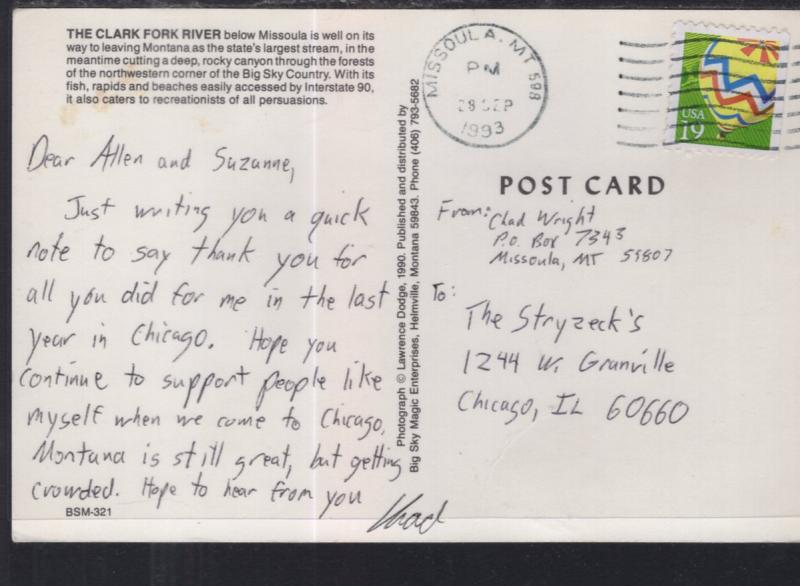 THE CLARK FORK RIVER below Missoula is well on its
way to leaving Montana as the state's largest stream, in the
meantime cutting a deep, rocky canyon through the forests
of the northwestern corner of the Big Sky Country. With its
fish, rapids and beaches easily accessed by Interstate 90,
it also caters to recreationists of all persuasions.
Dear Allen and Suzanne,
Just writing you a quick
note to say thank you for
all you did for me in the last
year in Chicago. Hope you
continue to support people like
myself when we come to Chicago.
Montana is still great, but getting
crowded. Hope to hear from you
Chad
BSM-321
Photograph © Lawrence Dodge, 1990. Published and distributed by
Big Sky Magic Enterprises, Helmville, Montana 59843. Phone (406) 793-5682
MISSOULA, MT 598
PM
28 SEP
1993
USA
19
POST CARD
From: Chad Wright
P.O. Box 7343
Missoula, MT 59807
To:
The Stryzeck's
1244 W. Granville
Chicago, IL 60660